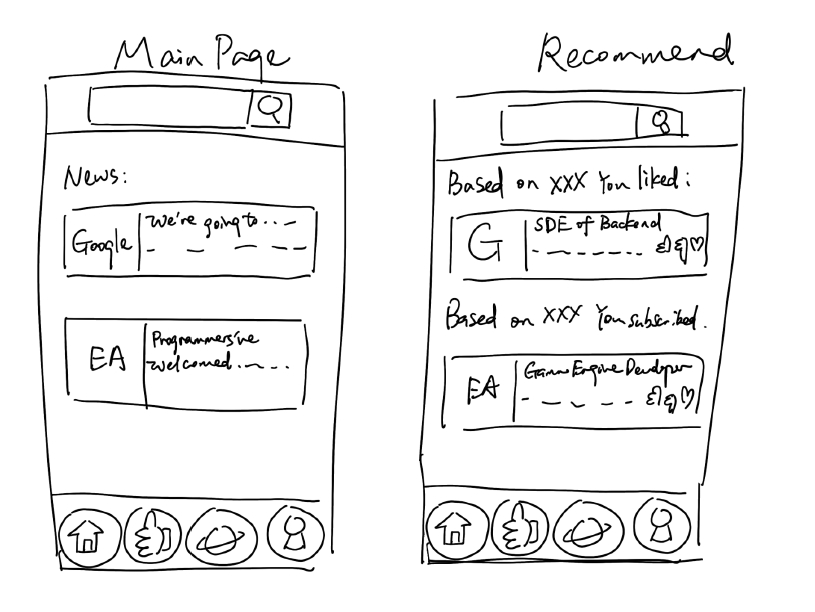 Main Page
News:
Google
We're going to...
EA
Programmers're
welcomed...
Recommend
Based on XXX You liked:
G
SDE of Backend
Based on XXX You subscribed.
EA
Game Engine Developer